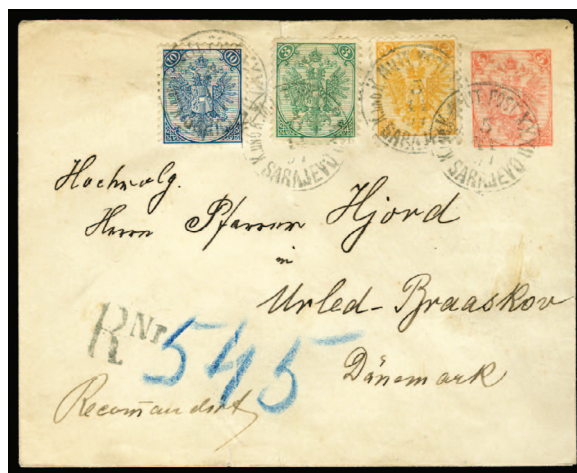 10 3 2 5
K. UND K. MILIT. POST
SARAJEVO
Hochwolg.
Herrn Pfarrer Hjord
in
Urled-Braaskov
Dänemark
R Nr. 545
Recomandirt